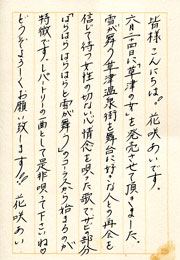 皆様こんにちは。花咲あいです。
六月二十四日に「草津の女」を発売させて頂きました。
雪が舞う草津温泉街を舞台に好きな人との再会を
信じて待つ女性の切ない心情念を唄った歌でサビ部分
「ばらはらはらはらと雪が舞う」のコーラスから始まるのが
特徴です。レパートリーの一曲として是非唄って下さいね。
どうぞよろしくお願い致します!! 花咲あい